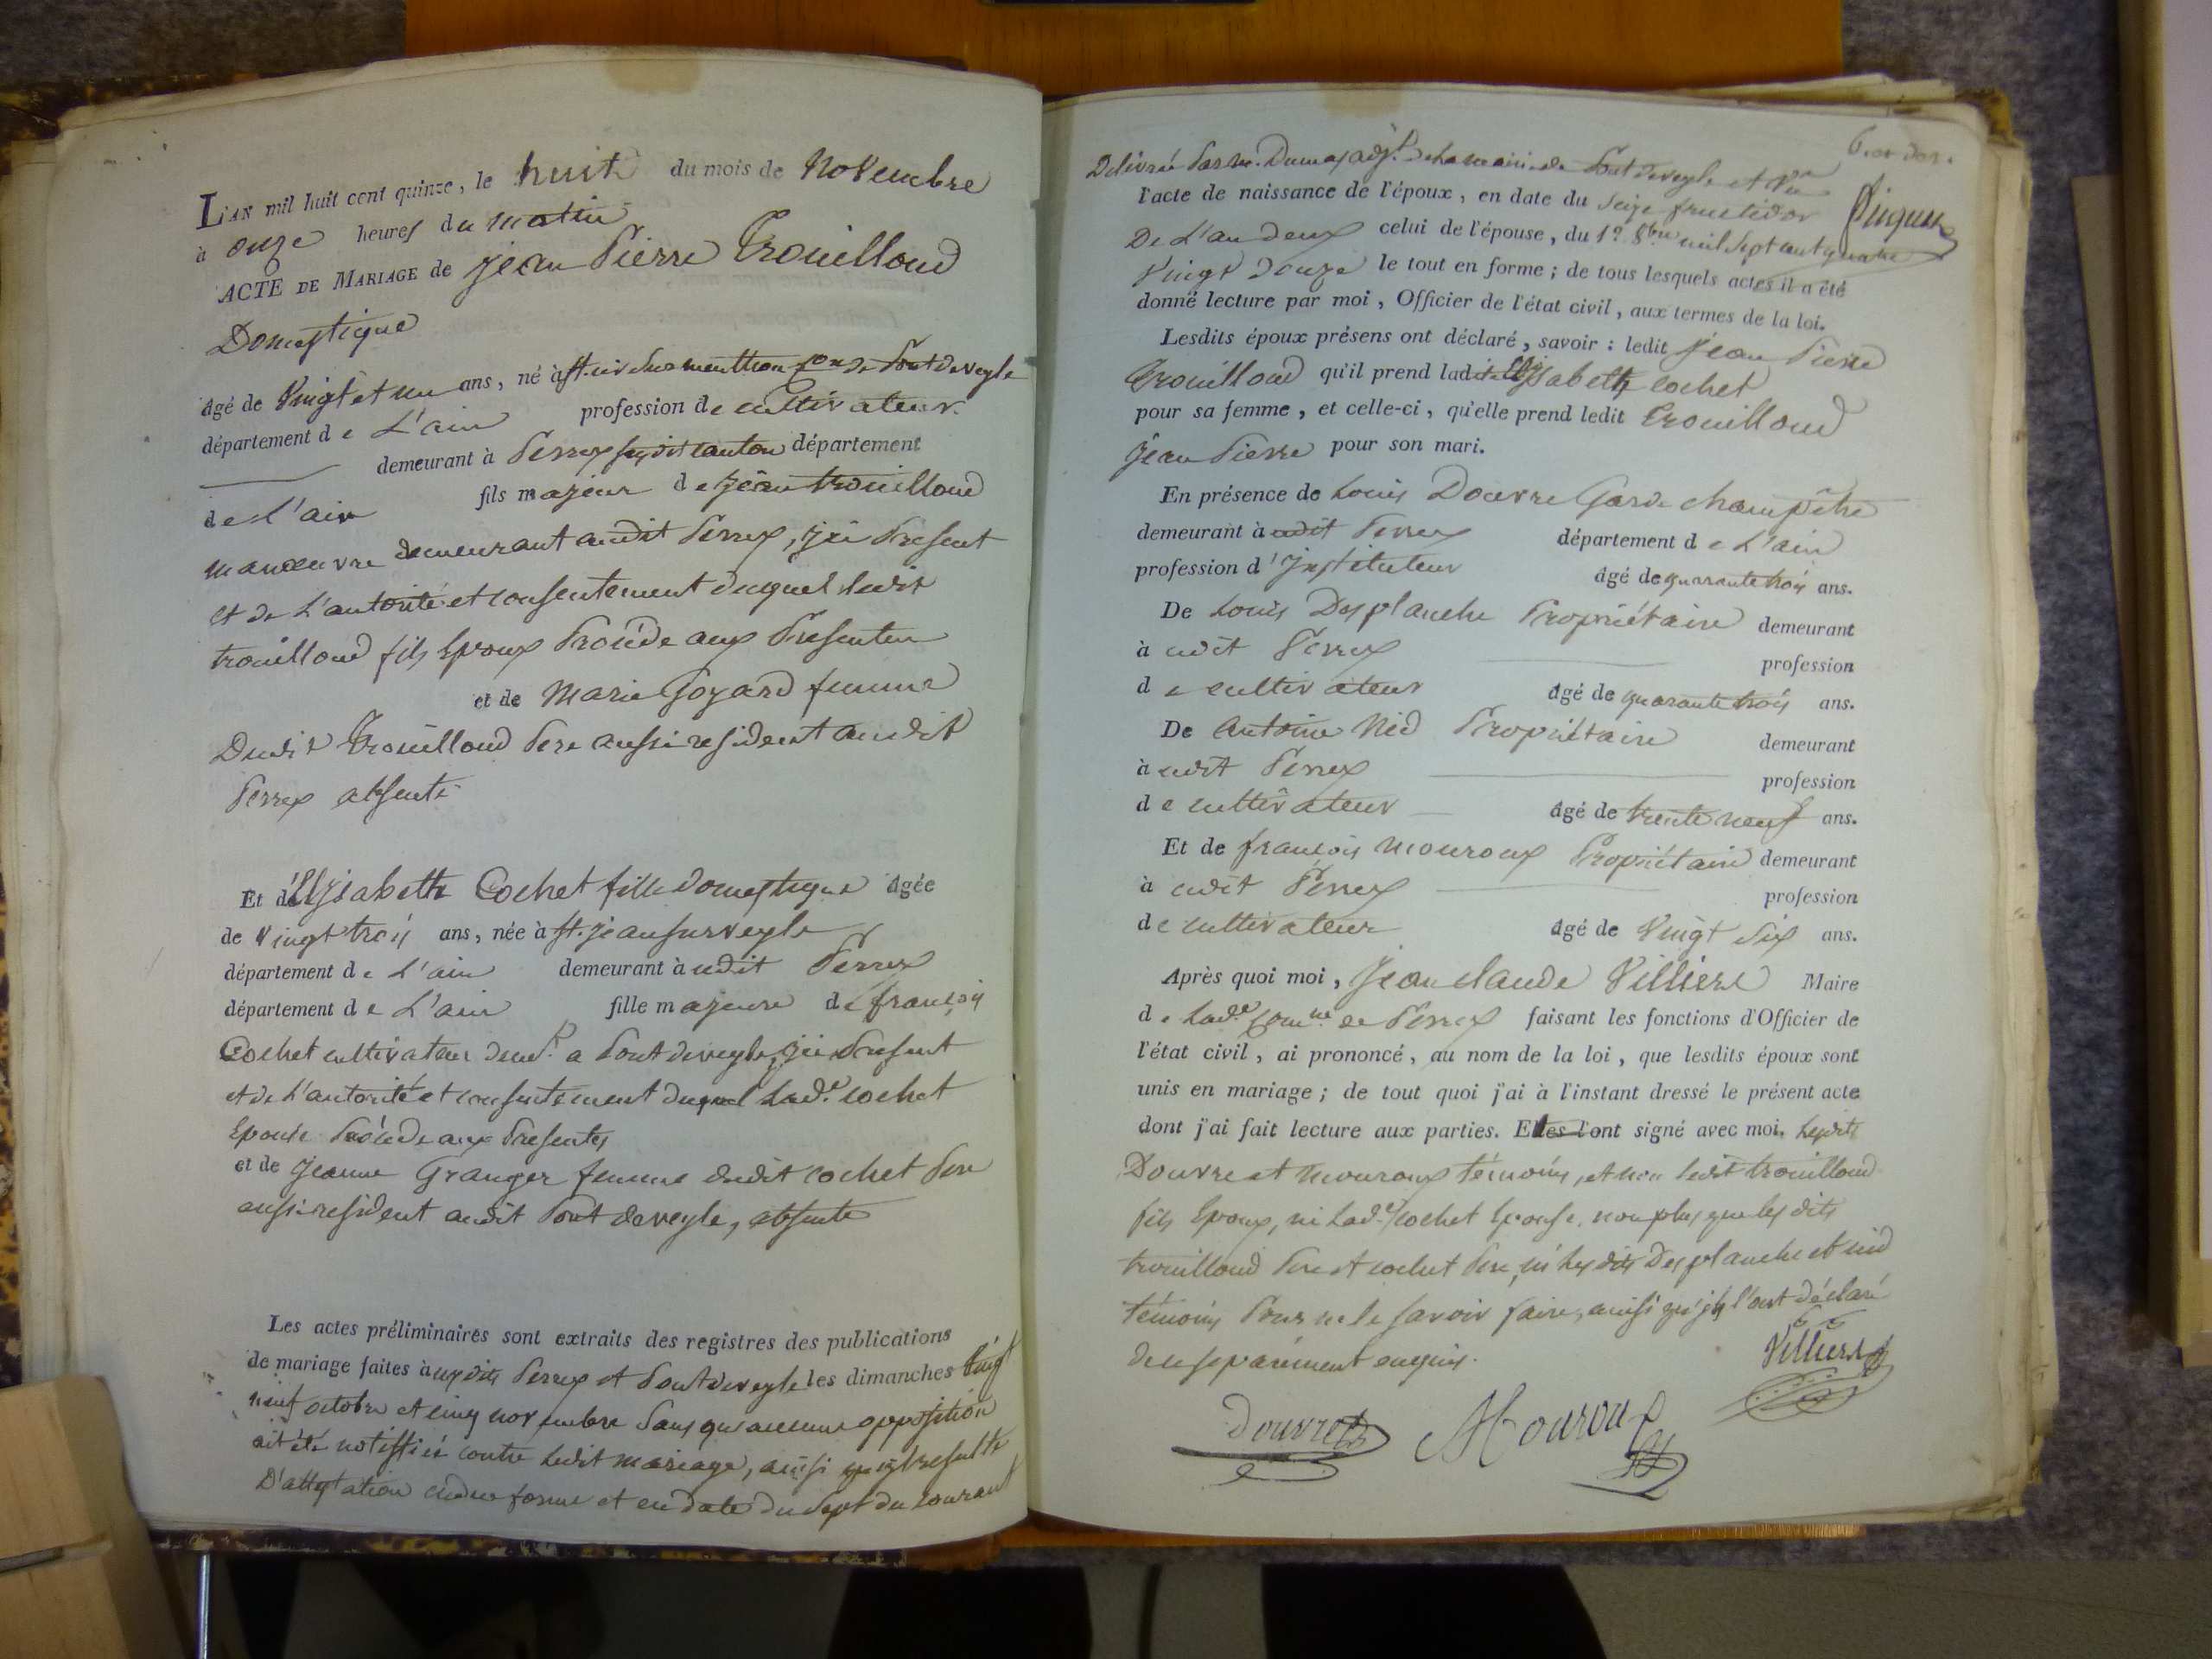 L'AN mil huit cent quinze, le huit du mois de Novembre
à onze heures du matin
ACTE DE MARIAGE de jean Pierre Trouilloud
Domestique
âgé de Vingt et un ans, né à st. cir sur menthon con de Pontdeveyle
département de L'ain profession de cultivateur
demeurant à Perrex susdit canton département
de L'ain fils majeur de jean trouilloud
manœuvre demeurant audit Perrex, ici Present
et de L'autorité et consentement duquel ledit
trouilloud fils Epoux Procéde aux Presentes
et de Marie Goyard femme
Dudit Trouilloud Pere aussi resident audit
Perrex absente
Et d'Elisabeth Cochet fille domestique âgée
de vingt trois ans, née à st. jean sur veyle
département de L'ain demeurant à udit Perrex
département de L'ain fille majeure de françois
Cochet cultivateur demt a Pont deveyle, ici Present
et de L'autorité et consentement duquel Lade cochet
Epouse Procéde aux Presentes
et de jeanne Granger femme dudit cochet Pere
aussi resident audit Pont deveyle, absente
Les actes préliminaires sont extraits des registres des publications
de mariage faites à usdits Perrex et Pontdeveyle les dimanches Vingt
neuf octobre et cinq novembre sans qu'aucune opposition
ait été notiffiée contre ledit mariage, ainsi qu'il resulte
D'attestation en due forme et en date du sept du courant
6.
Délivrée Par Mr. Dumas adjt. de la mairie de Pont deveyle et Vu
l'acte de naissance de l'époux, en date du seize fructidor
De L'an deux celui de l'épouse, du 1er 8bre mil sept cent quatre
Vingt douze le tout en forme ; de tous lesquels actes il a été
donné lecture par moi, Officier de l'état civil, aux termes de la loi.
Lesdits époux présens ont déclaré, savoir : ledit jean Pierre
Trouilloud qu'il prend ladite Elisabeth cochet
pour sa femme, et celle-ci, qu'elle prend ledit Trouilloud
jean Pierre pour son mari.
En présence de Louis Douvre Garde champêtre
demeurant à udit Perrex département de L'ain
profession d'instituteur âgé de quarante trois ans.
De Louis Desplanche Propriétaire demeurant
à udit Perrex profession
de cultivateur âgé de quarante trois ans.
De Antoine Nid Propriétaire demeurant
à udit Perrex profession
de cultivateur âgé de trente neuf ans.
Et de françois Mouroux Propriétaire demeurant
à udit Perrex profession
de cultivateur âgé de Vingt six ans.
Après quoi moi, Jean claude Villiere Maire
de Lade Comne de Perrex faisant les fonctions d'Officier de
l'état civil, ai prononcé, au nom de la loi, que lesdits époux sont
unis en mariage ; de tout quoi j'ai à l'instant dressé le présent acte
dont j'ai fait lecture aux parties. Elles l'ont signé avec moi. Lesdits
Douvre et Mouroux témoins, et non ledit trouilloud
fils Epoux, ni Lade cochet Epouse, non plus que les dits
trouilloud Pere et cochet Pere, ni les dits Desplanche et nid
témoins Pour ne le savoir faire, ainsi qu'ils l'ont déclaré
de ce séparément enquis.
Villiere
Douvre
Mouroux